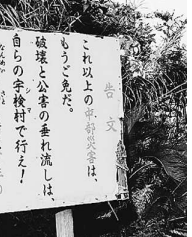 告文
これ以上の
もうご免だ。
破壊と公害の垂れ流しは、
シマ
自らの宇検村で行え！